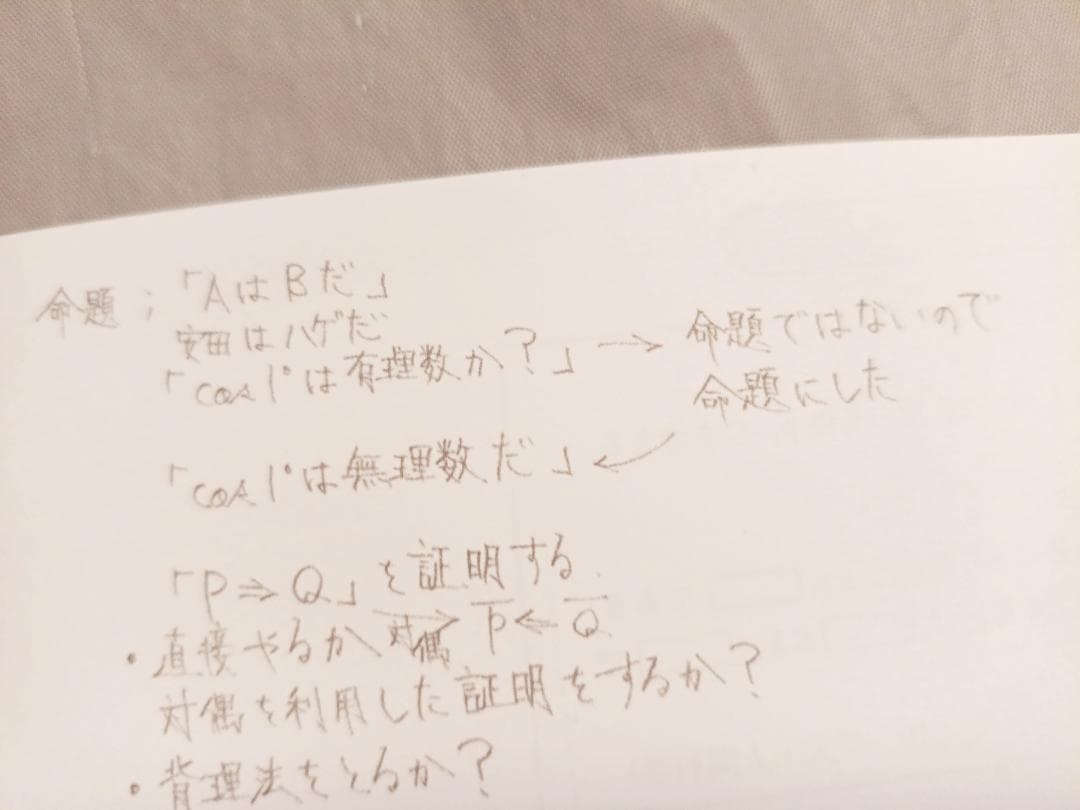 命題；「AはBだ」
安田はハゲだ
「cos1°は有理数か？」→命題ではないので
命題にした
「cos1°は無理数だ」←
「P⇒Q」を証明する
・直接やるか 対偶→ P̅⇐Q̅
対偶を利用した証明をするか？
・背理法をとるか？